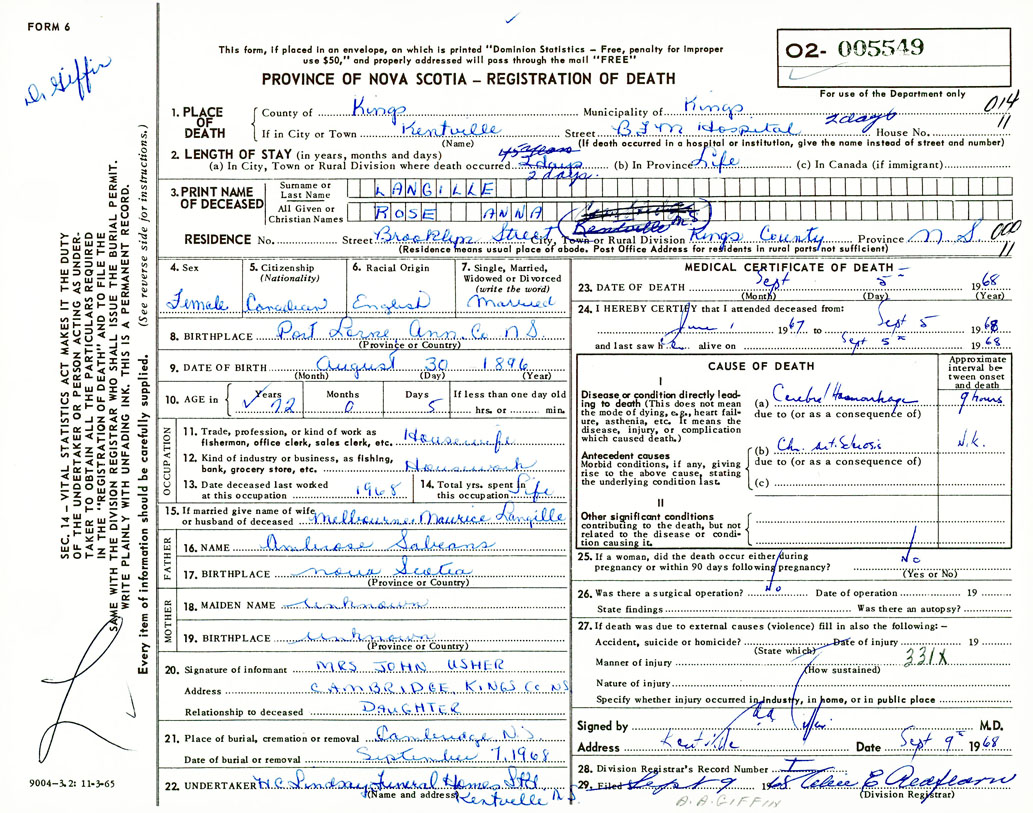 FORM 6
D. Giffin
This form, if placed in an envelope, on which is printed "Dominion Statistics – Free, penalty for improper
use $50," and properly addressed will pass through the mail "FREE"
PROVINCE OF NOVA SCOTIA – REGISTRATION OF DEATH
02- 005549
For use of the Department only
014
11
1. PLACE OF DEATH
County of Kings Municipality of Kings
If in City or Town Kentville Street B.F.M Hospital 2 days House No.
(Name) (If death occurred in a hospital or institution, give the name instead of street and number)
2. LENGTH OF STAY (in years, months and days) 45 years
(a) In City, Town or Rural Division where death occurred 2 days (b) In Province Life (c) In Canada (if immigrant)
2 days
3. PRINT NAME OF DECEASED
Surname or Last Name LANGILLE
All Given or Christian Names ROSE ANNA
Kentville N S
RESIDENCE No. Street Brooklyn Street City, Town or Rural Division Kings County Province N S
000
11
(Residence means usual place of abode. Post Office Address for residents in rural parts not sufficient)
4. Sex
Female
5. Citizenship
(Nationality)
Canadian
6. Racial Origin
English
7. Single, Married,
Widowed or Divorced
(write the word)
Married
8. BIRTHPLACE Port Lorne Ann. Co N S.
(Province or Country)
9. DATE OF BIRTH August 30 1896
(Month) (Day) (Year)
10. AGE in Years 72 Months 0 Days 5 If less than one day old
hrs. or min.
OCCUPATION
11. Trade, profession, or kind of work as
fishermon, office clerk, sales clerk, etc. Housewife
12. Kind of industry or business, as fishing,
bank, grocery store, etc. Housework
13. Date deceased last worked
at this occupation 1968
14. Total yrs. spent in
this occupation Life
15. If married give name of wife
or husband of deceased Melbourne Maurice Langille
FATHER
16. NAME Ambrose Sabeans
17. BIRTHPLACE Nova Scotia
(Province or Country)
MOTHER
18. MAIDEN NAME unknown
19. BIRTHPLACE unknown
(Province or Country)
20. Signature of informant MRS JOHN USHER
Address CAMBRIDGE, KINGS Co NS
Relationship to deceased DAUGHTER
21. Place of burial, cremation or removal Cambridge N.S.
Date of burial or removal September 7, 1968
22. UNDERTAKER H.C. Lindsay Funeral Homes Ltd
(Name and address) Kentville N S.
MEDICAL CERTIFICATE OF DEATH –
23. DATE OF DEATH Sept 5 1968
(Month) (Day) (Year)
24. I HEREBY CERTIFY that I attended deceased from:
June 1 1967 to Sept 5 1968
and last saw h er alive on Sept 5th 1968
CAUSE OF DEATH
Approximate
interval be-
tween onset
and death
I
Disease or condition directly lead-
ing to death (This does not mean
the mode of dying, e.g., heart fail-
ure, asthenia, etc. It means the
disease, injury, or complication
which caused death.)
(a) Cerebral Haemorrhage 9 hours
due to (or as a consequence of)
Antecedent causes
Morbid conditions, if any, giving
rise to the above cause, stating
the underlying condition last.
(b) Ch. art. Sclerosis N.K.
due to (or as a consequence of)
(c)
II
Other significant conditions
contributing to the death, but not
related to the disease or condi-
tion causing it.
25. If a woman, did the death occur either during
pregnancy or within 90 days following pregnancy? No
(Yes or No)
26. Was there a surgical operation? No Date of operation 19
State findings Was there an autopsy?
27. If death was due to external causes (violence) fill in also the following: –
Accident, suicide or homicide? Date of injury 19
(State which)
Manner of injury 331X
(How sustained)
Nature of injury
Specify whether injury occurred in industry, in home, or in public place
Signed by M.D.
Address Kentville Date Sept 9th 1968
28. Division Registrar's Record Number
29. Filed Sept 9 1968
(Division Registrar)
A. A. GIFFIN
SEC. 14 – VITAL STATISTICS ACT MAKES IT THE DUTY
OF THE UNDERTAKER OR PERSON ACTING AS UNDER-
TAKER TO OBTAIN ALL THE PARTICULARS REQUIRED
IN THE "REGISTRATION OF DEATH" AND TO FILE THE
SAME WITH THE DIVISION REGISTRAR WHO SHALL ISSUE THE BURIAL PERMIT.
WRITE PLAINLY WITH UNFADING INK. THIS IS A PERMANENT RECORD.
Every item of information should be carefully supplied. (See reverse side for instructions.)
9004-3.2: 11-3-65